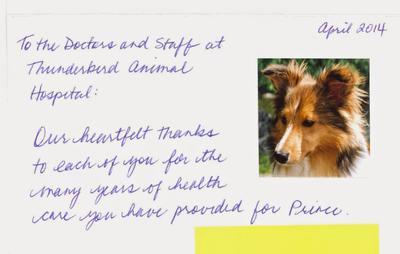 April 2014
To the Doctors and Staff at
Thunderbird Animal
Hospital:
Our heartfelt thanks
to each of you for the
many years of health
care you have provided for Prince.